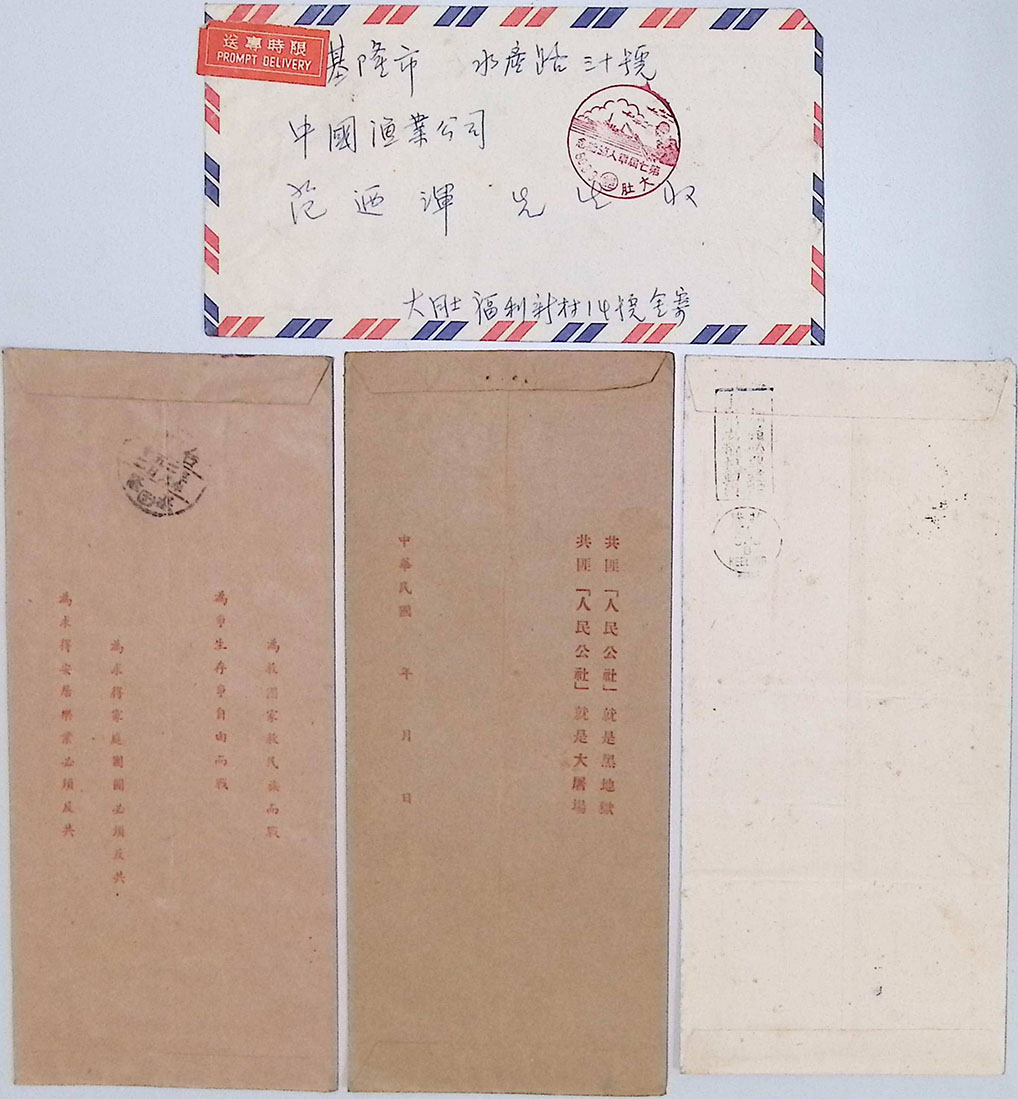 限時專送
PROMPT DELIVERY
基隆市 水產路三十號
中國漁業公司
范迺渾先生收
大肚福利新村14號金寄
大肚
為救國家救民族而戰
為爭生存爭自由而戰
為求得家庭團圓必須反共
為求得安居樂業必須反共
共匪「人民公社」就是黑地獄
共匪「人民公社」就是大屠場
中華民國 年 月 日